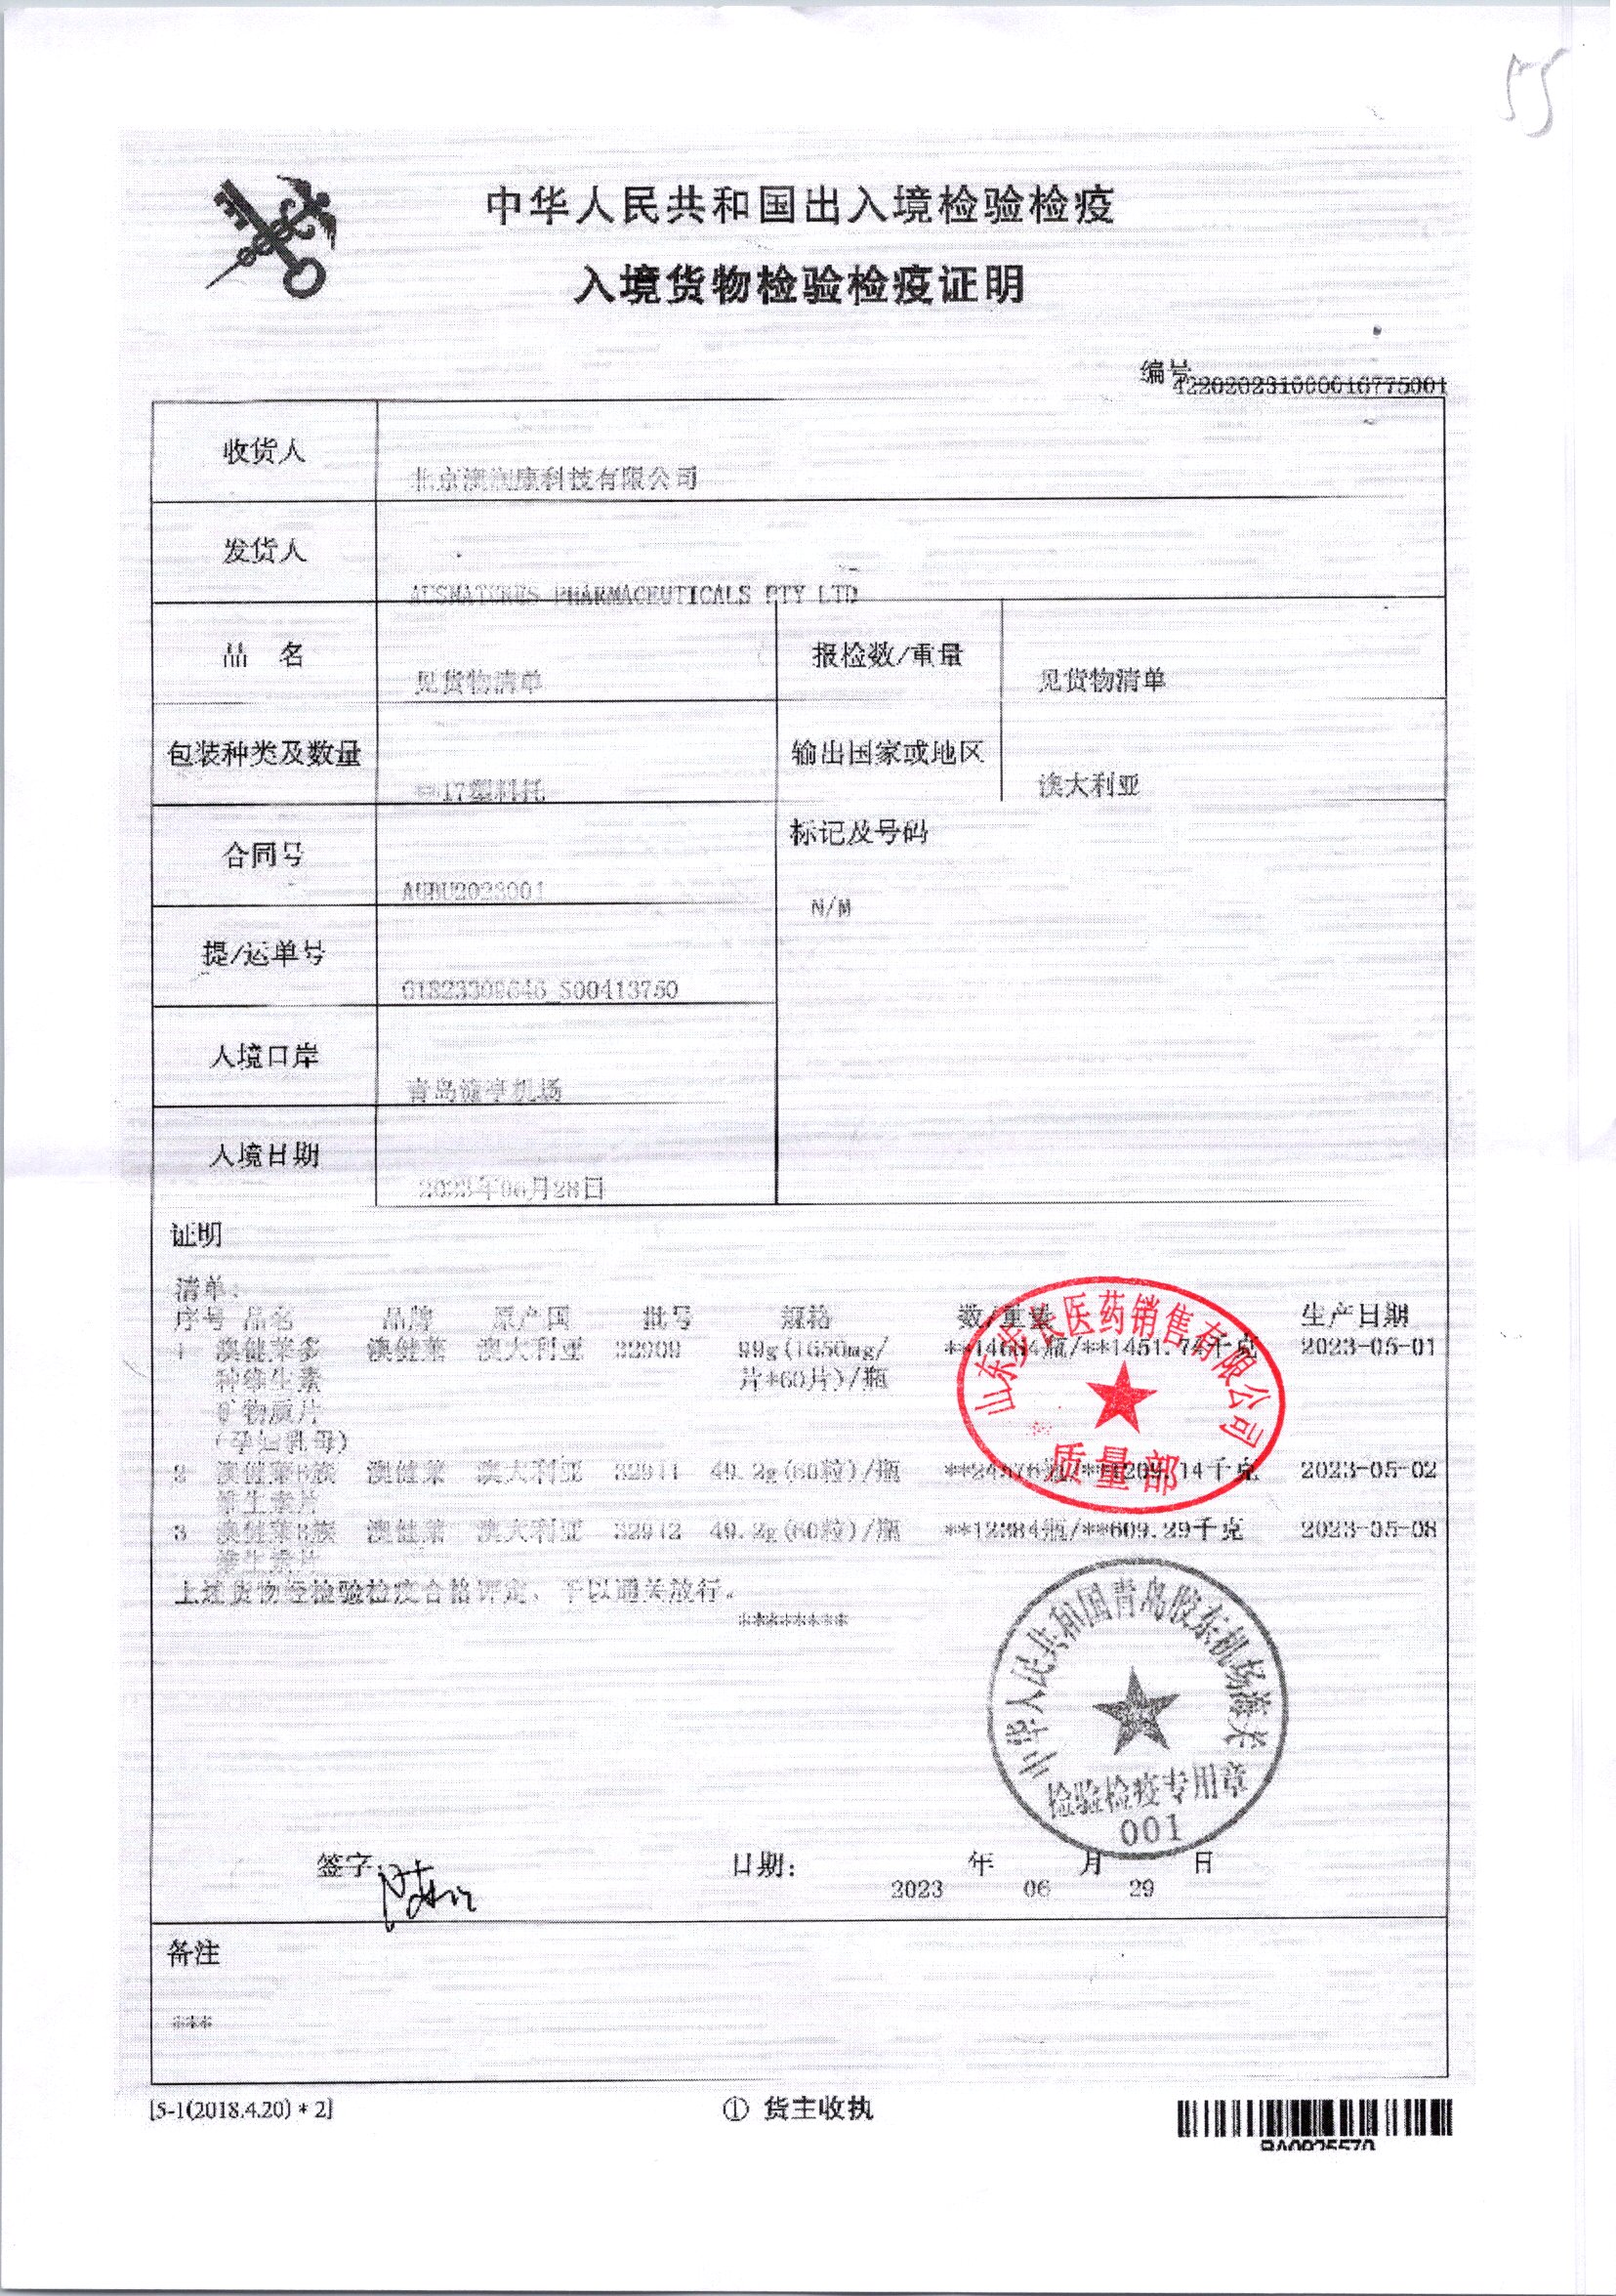 中华人民共和国出入境检验检疫
入境货物检验检疫证明
编号
422020231000016775001
收货人
北京澳润康科技有限公司
发货人
AUSNATURES PHARMACEUTICALS PTY LTD
品 名
见货物清单
报检数/重量
见货物清单
包装种类及数量
**17塑料托
输出国家或地区
澳大利亚
合同号
标记及号码
N/M
提/运单号
S00413750
入境口岸
青岛流亭机场
入境日期
2023年06月28日
证明
清单:
序号 品名 品牌 原产国 批号 规格 数/重量 生产日期
1 澳健莱多 澳健莱 澳大利亚 32909 99g(1650mg/ 2023-05-01
种维生素 片*60片)/瓶
矿物质片
(孕妇乳母)
2 澳健莱B族 澳健莱 澳大利亚 32911 49.2g(60粒)/瓶 2023-05-02
维生素片
3 澳健莱B族 澳健莱 澳大利亚 32912 49.2g(60粒)/瓶 **12384瓶/**609.29千克 2023-05-08
维生素片
上述货物经检验检疫合格评定,予以通关放行。
********
山东步长医药销售有限公司
质量部
中华人民共和国青岛胶东机场海关
检验检疫专用章
001
签字
日期: 年 月 日
2023 06 29
备注
***
[5-1(2018.4.20) * 2]
① 货主收执